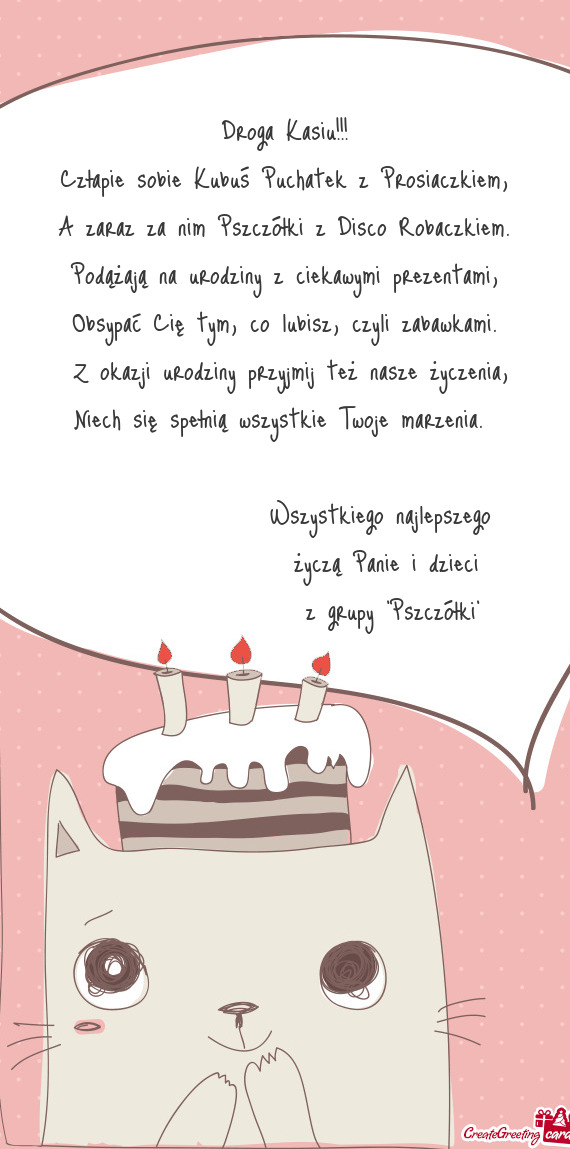 Droga Kasiu!!!
Człapie sobie Kubuś Puchatek z Prosiaczkiem,
A zaraz za nim Pszczółki z Disco Robaczkiem.
Podążają na urodziny z ciekawymi prezentami,
Obsypać Cię tym, co lubisz, czyli zabawkami.
Z okazji urodziny przyjmij też nasze życzenia,
Niech się spełnią wszystkie Twoje marzenia.
Wszystkiego najlepszego
życzą Panie i dzieci
z grupy "Pszczółki"
CreateGreeting card